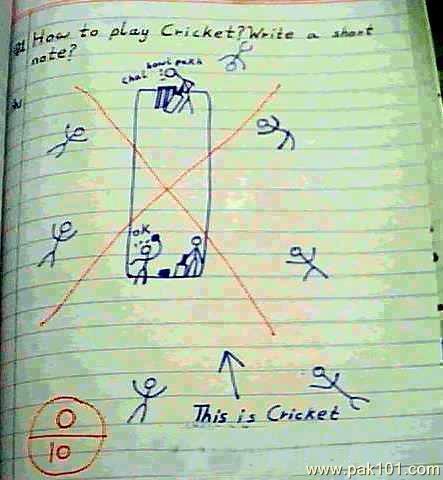 Q1 How to play Cricket? Write a short
note?
bowl pakh
chal
OK
This is Cricket
0
10
www.pak101.com